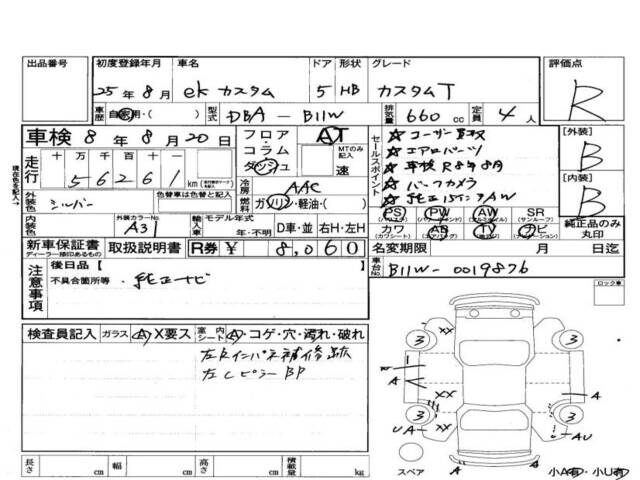 出品番号 初度登録年月 車名 ドア 形状 グレード 評価点
25年8月 ekカスタム 5 HB カスタムT R
車歴 自家用・( ) 型式 DBA-B11W 排気量 660cc 定員 4人
車検 8年8月20日 フロア AT
コラム MTのみ記入
ダッシュ 速
走行 十万千百十一
56261 km
冷房 AAC
外装色 シルバー 色替車は色替色を記入 燃料 ガソリン・軽油・( )
内装色 外装カラーNo. A31 輸入車 モデル年式 年・不明 D車・並 右H・左H
新車保証書 取扱説明書 R券 ¥8,060
ディーラー捺印あるもの
現在色を記入→
セールスポイント
☆コーザー買取
☆エアロパーツ
☆車検R8年8月
☆バックカメラ
☆純正15インチAW
PS PW AW サンルーフ
カワ AB TV ナビ 純正品のみ丸印
[外装] B
[内装] B
名変期限 月 日迄
車台No. B11W-0019876
注意事項 後日品【 】
不具合箇所等 ・純正ナビ
ロック車
検査員記入 ガラス A X要ス 室内シート A・コゲ・穴・汚れ・破れ
左Rインパネ補修跡
左Cピラー BP
3 XX 3
A A
XX
3 UA XX 3 AU
A A
スペア 小A有・小U有
長さ cm 幅 cm 高さ cm 積載量 kg